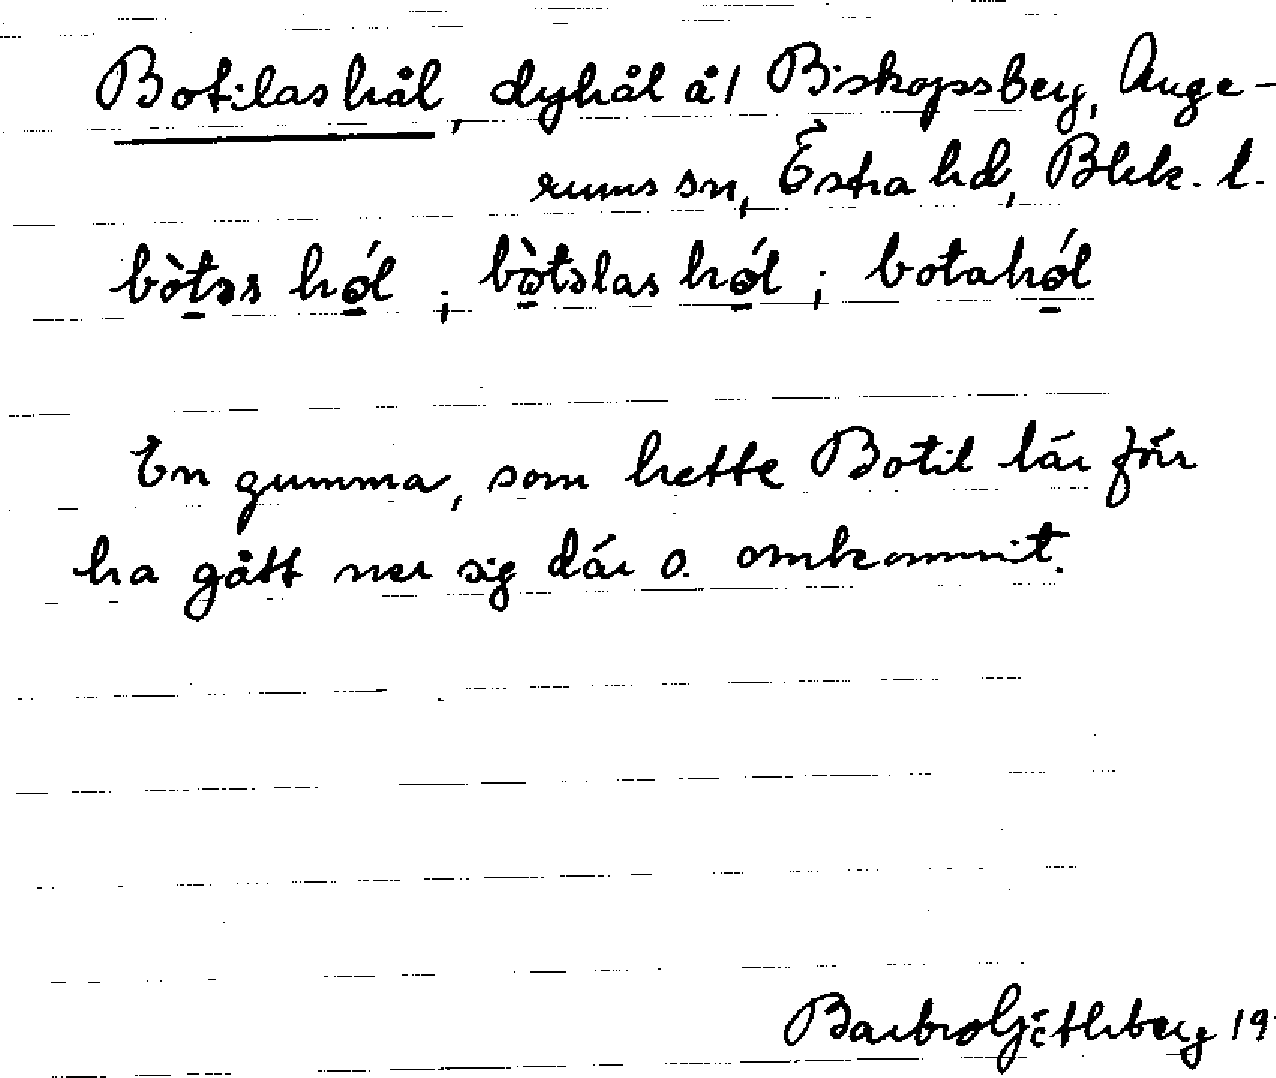 Botilashål, dyhål å 1 Biskopsberg, Auge-
rums sn, Östra hd, Blek. l.
bòtəs hǿl ; bòtəlas hǿl ; botahǿl
En gumma, som hette Botil lär förr
ha gått ner sig där o. omkommit.
Barbro Göthberg 19